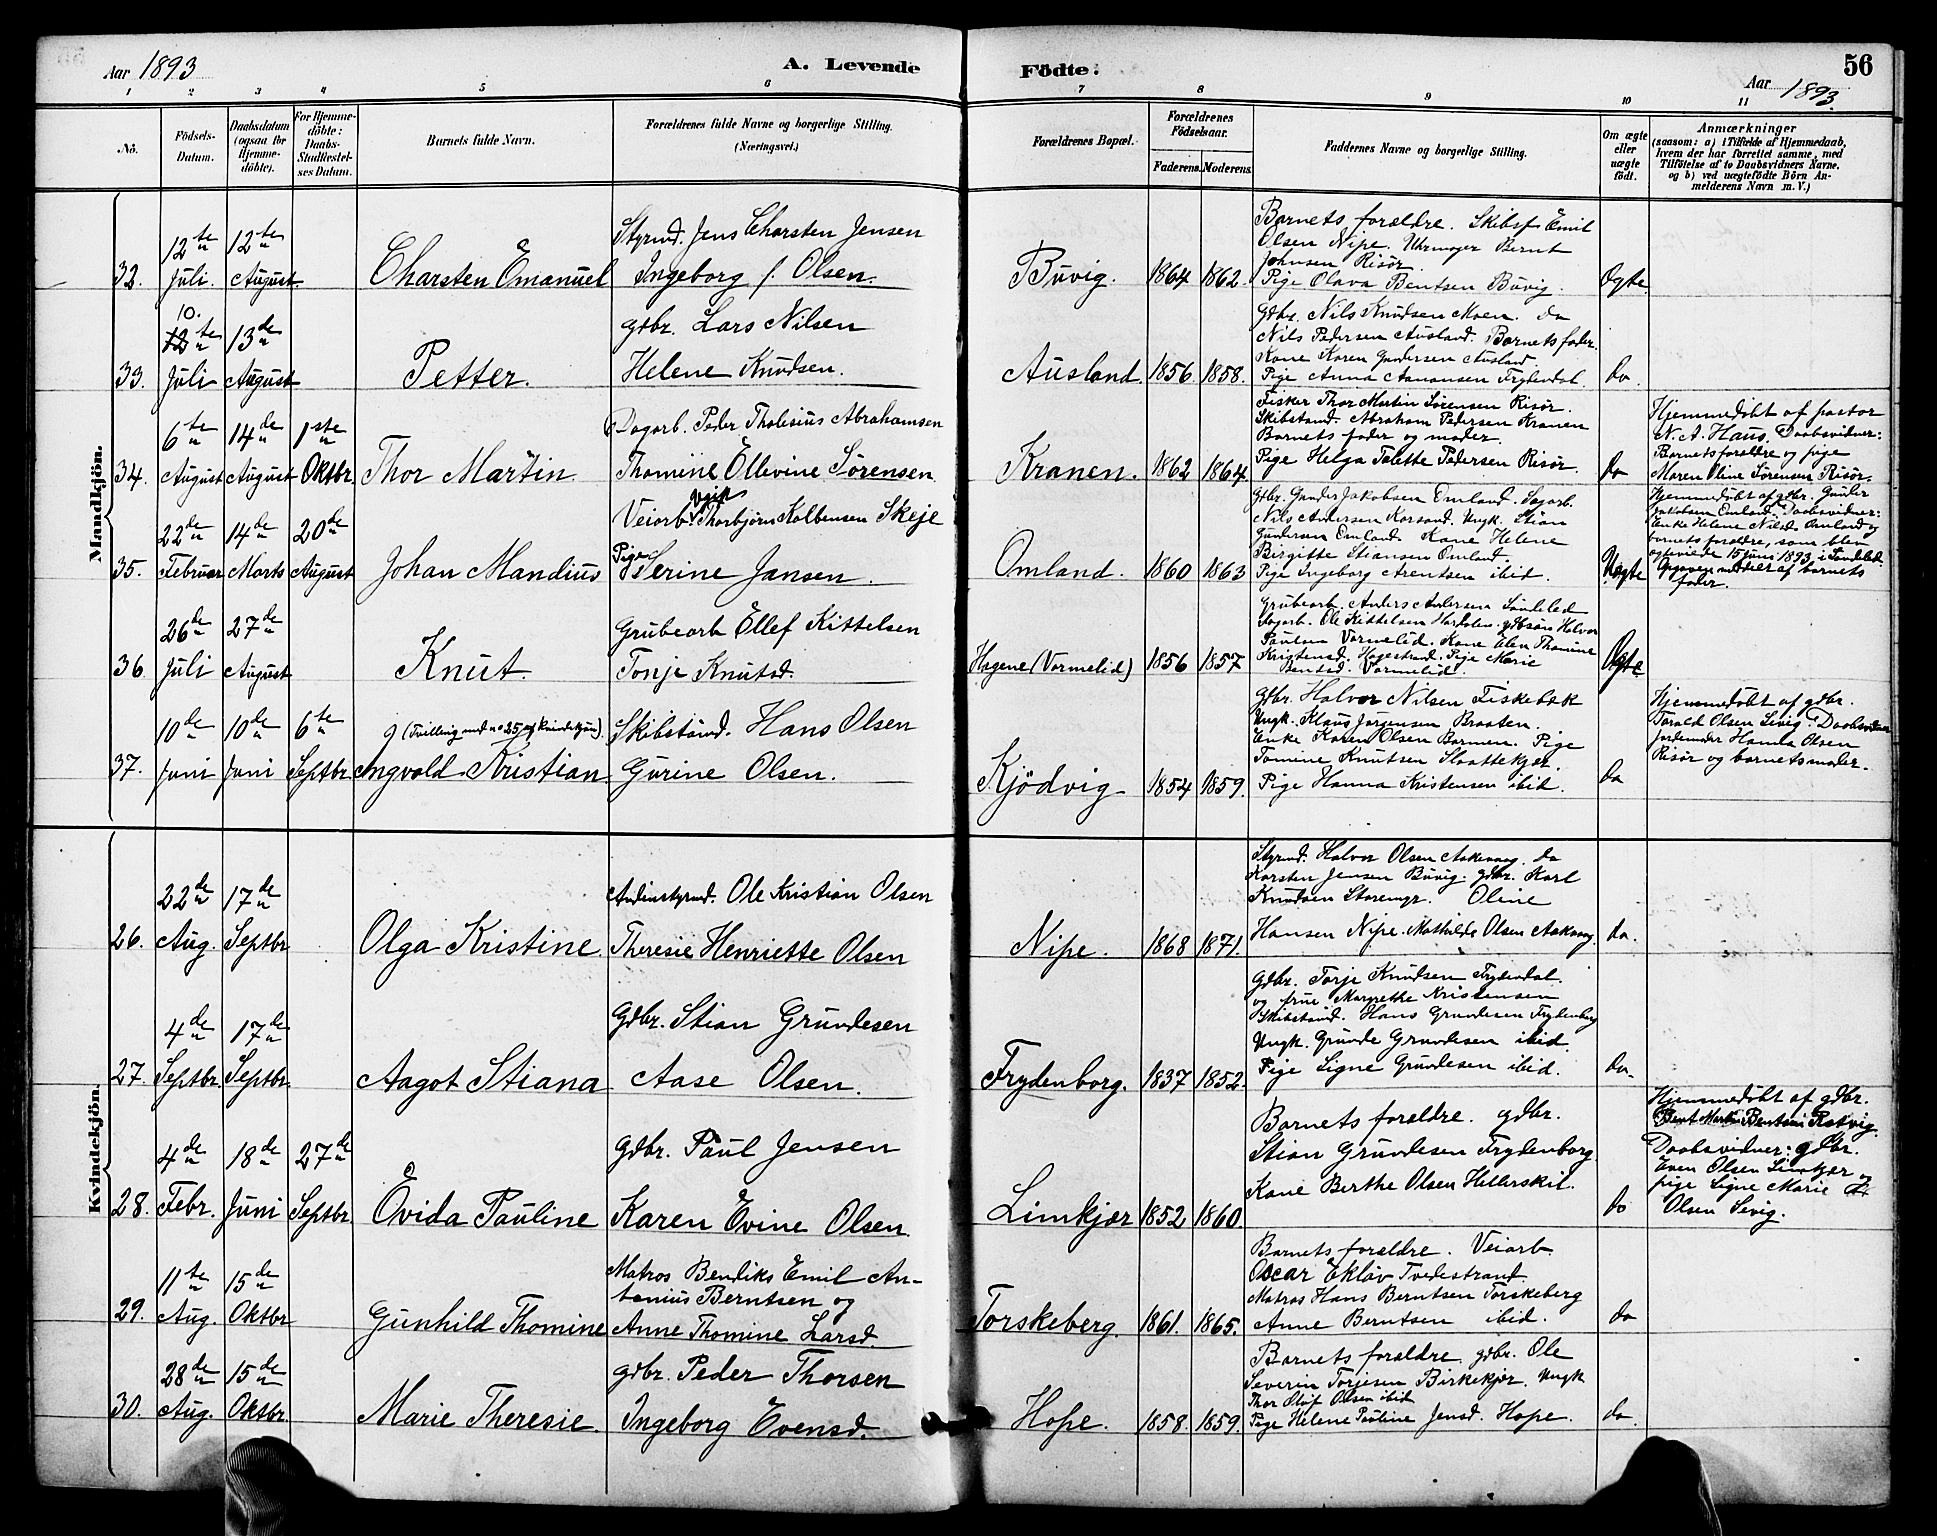 Aar 1893
A. Levende
Födte.
Aar 1893.
56
1 2 3 4 5 6 7 8 9 10 11
No.
Födsels-
Datum.
Daabsdatum
(ogsaa for
Hjemme-
döbte).
For Hjemme-
döbte:
Daabs-
Stadfæstel-
ses Datum.
Barnets fulde Navn.
Forældrenes fulde Navne og borgerlige Stilling.
(Næringsvei.)
Forældrenes Bopæl.
Forældrenes
Födselsaar.
Faderens. Moderens.
Faddernes Navne og borgerlige Stilling.
Om ægte
eller
uægte
født.
Anmærkninger
(saasom: a) i Tilfælde af Hjemmedaab,
hvem der har forrettet samme, med
Tilföielse af to Daabsvidners Navne,
og b) ved uægtefödte Börn An-
melderens Navn m. V.)
Mandkjön.
32.
12te
Juli.
12te
August
Charsten Emanuel
Styrmd. Jens Charsten Jensen
Ingeborg f. Olsen.
Buvig.
1864
1862.
Barnets forældre. Skibsf Emil
Olsen Nipe. Uhrmager Bernt
Johnsen Risør.
Pige Olava Bentsen Buvig.
Ægte
33.
10.
12te
Juli
13de
August
Petter.
gdbr. Lars Nilsen
Helene Knudsen.
Ausland.
1856
1858.
Gdbr. Nils Knudsen Moen. do
Nils Pedersen Ausland. Barnets fader.
Kone Karen Gundersen Ausland
Pige Anna Aanansen Frydendal.
do
34.
6te
August
14de
August
1ste
Oktbr.
Thor Martin.
Dagarb. Peder Tholesius Abrahamsen
Thomine Ellevine Sørensen
Kranen.
1862
1864
Fisker Thor Martin Sørensen Risør.
Skibstømd. Abraham Pedersen Kranen
Barnets fader og moder.
Pige Helga Talette Pedersen Risør.
do
Hjemmedøbt af pastor
N. A. Haus. Daabsvidner:
Barnets forældre og pige
Maren Oline Sørensen Risør.
35.
22de
Februar
14de
Marts
20de
August
Johan Mandius
Veiarb. Thorbjørn Kolbensen Skeje
Pige Serine Jansen.
Omland.
1860
1863
Gdbr. Gunder Jakobsen Omland. Sagarb.
Nils Andersen Korsand. Ungk. Stian
Gundersen Omland. Kone Helene
Birgitte Stiansen Omland.
Pige Ingeborg Arentsen ibid.
Uægte
Hjemmedøbt af gdbr. Gunder
Jakobsen Omland. Daabsvidner:
Enke Helene Nilsd. Omland og
barnets forældre, som blev
ægteviede 15 juni 1893 i Søndeled.
Opgaven meddelt af barnets
fader.
36.
26de
Juli
27de
August
Knut.
Grubearb Ellef Kittelsen
Tonje Knutsd.
Hagene (Vormelid)
1856
1857
Grubearb. Anders Andersen Søndeled
Sagarb. Ole Kittelsen gdbsøn Halvor
Paulsen Vormelid. Kone Elen Thomine
Kristensd. Hagestrand. Pige Marie
Bentsd. Vormelid.
Ægte
37.
10de
Juni
10de
Juni
6te
Septbr
(Tvilling med no 25 af kvindekjøn).
Ingvald Kristian
Skibstømd. Hans Olsen
Gurine Olsen.
Kjødvig
1854
1859.
Gdbr. Halvor Nilsen Fiskebæk
Ungk. Klaus Jørgensen Braaten.
Enke Karen Olsen Barmen. Pige
Tomine Knutsen Slaattekjær.
Pige Hanna Kristensen ibid.
do
Hjemmedøbt af gdbr.
Torald Olsen Sivig. Daabsvidner
Jordemoder Hanna Olsen
Risør og barnets moder.
Kvindekjön.
26.
22de
Aug.
17de
Septbr
Olga Kristine.
Andenstyrmd. Ole Kristian Olsen
Theresie Henriette Olsen
Nipe.
1868
1871.
Styrmd. Halvor Olsen Aakvaag. do
Karsten Jensen Buvig. gdbr. Karl
Knudsen Storemyr. Oline
Hansen Nipe. Mathilde Olsen Aakvaag.
do.
27.
4de
Septbr.
17de
Septbr.
Aagot Stiana
Gdbr. Stian Grundesen
Aase Olsen.
Frydenborg.
1837
1852.
Gdbr. Torje Knudsen Frydendal.
og frue Margrethe Kristensen
Skibstømd. Hans Grundesen Frydenborg
Ungk. Grunde Grundesen ibid.
Pige Signe Grundesen ibid.
do.
28.
4de
Febr.
18de
Juni
27de
Septbr
Ovida Pauline
Gdbr. Paul Jensen
Karen Evine Olsen
Limkjær
1852
1860
Barnets forældre. gdbr.
Stian Grundesen Frydenborg
Kone Berthe Olsen Hellerskil.
do
Hjemmedøbt af gdbr.
Bent Martin Bentsen Rotvig.
Daabsvidner: gdbr.
Even Olsen Limkjær og
pige Signe Marie
Olsen Sevig.
29.
11te
Aug.
15de
Oktbr
Gunhild Thomine
Matros Bendiks Emil An-
tonius Berntsen og
Anne Thomine Larsd.
Torskeberg.
1861.
1865.
Barnets forældre. Veiarb
Oscar Ekløv Tvedestrand
Matros Hans Berntsen Torskeberg
Anne Berntsen ibid.
do
30.
28de
Aug.
15de
Oktbr.
Marie Theresie.
gdbr. Peder Thorsen
Ingeborg Evensd.
Hope.
1858.
1859.
Barnets forældre. gdbr. Ole
Severin Torjesen Birkekjær. Ungk
Thor Oluf Olsen ibid
Pige Helene Pauline Jensd. Hope.
do.